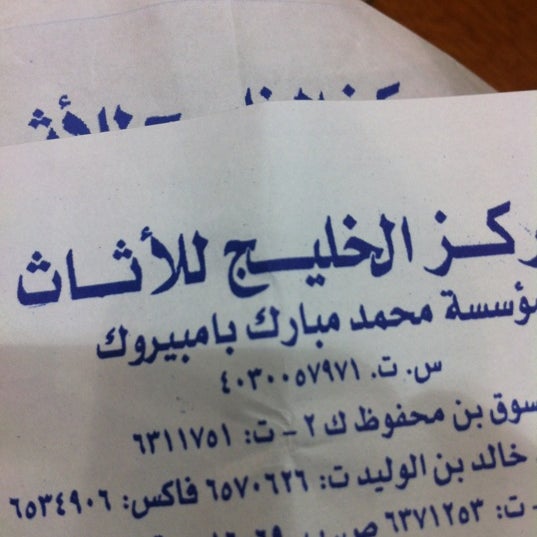 ركز الخليج للأثاث
مؤسسة محمد مبارك بامبيروك
س. ت. ٤٠٣٠٠٥٧٩٧١
سوق بن محفوظ ك ٢ - ت: ٦٣١١٧٥١
خالد بن الوليد ت: ٦٥٧٠٦٢٦ فاكس: ٦٥٣٤٩٠٦
- ت: ٦٣٧١٢٥٣